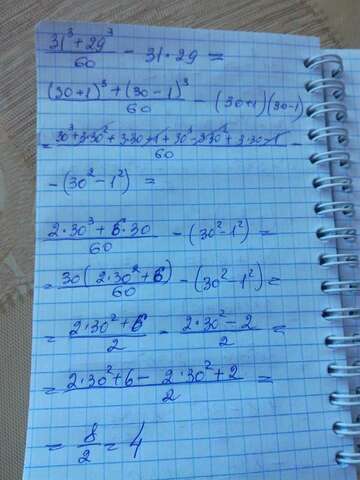 (31³ + 29³)/60 − 31·29 =
((30+1)³ + (30−1)³)/60 − (30+1)(30−1)
= (30³+3·30²+3·30+1+30³−3·30²+3·30−1)/60 −
−(30²−1²) =
(2·30³+6·30)/60 − (30²−1²) =
= 30(2·30²+6)/60 − (30²−1²) =
= (2·30²+6)/2 − (2·30²−2)/2 =
= (2·30²+6− 2·30²+2)/2 =
= 8/2 = 4